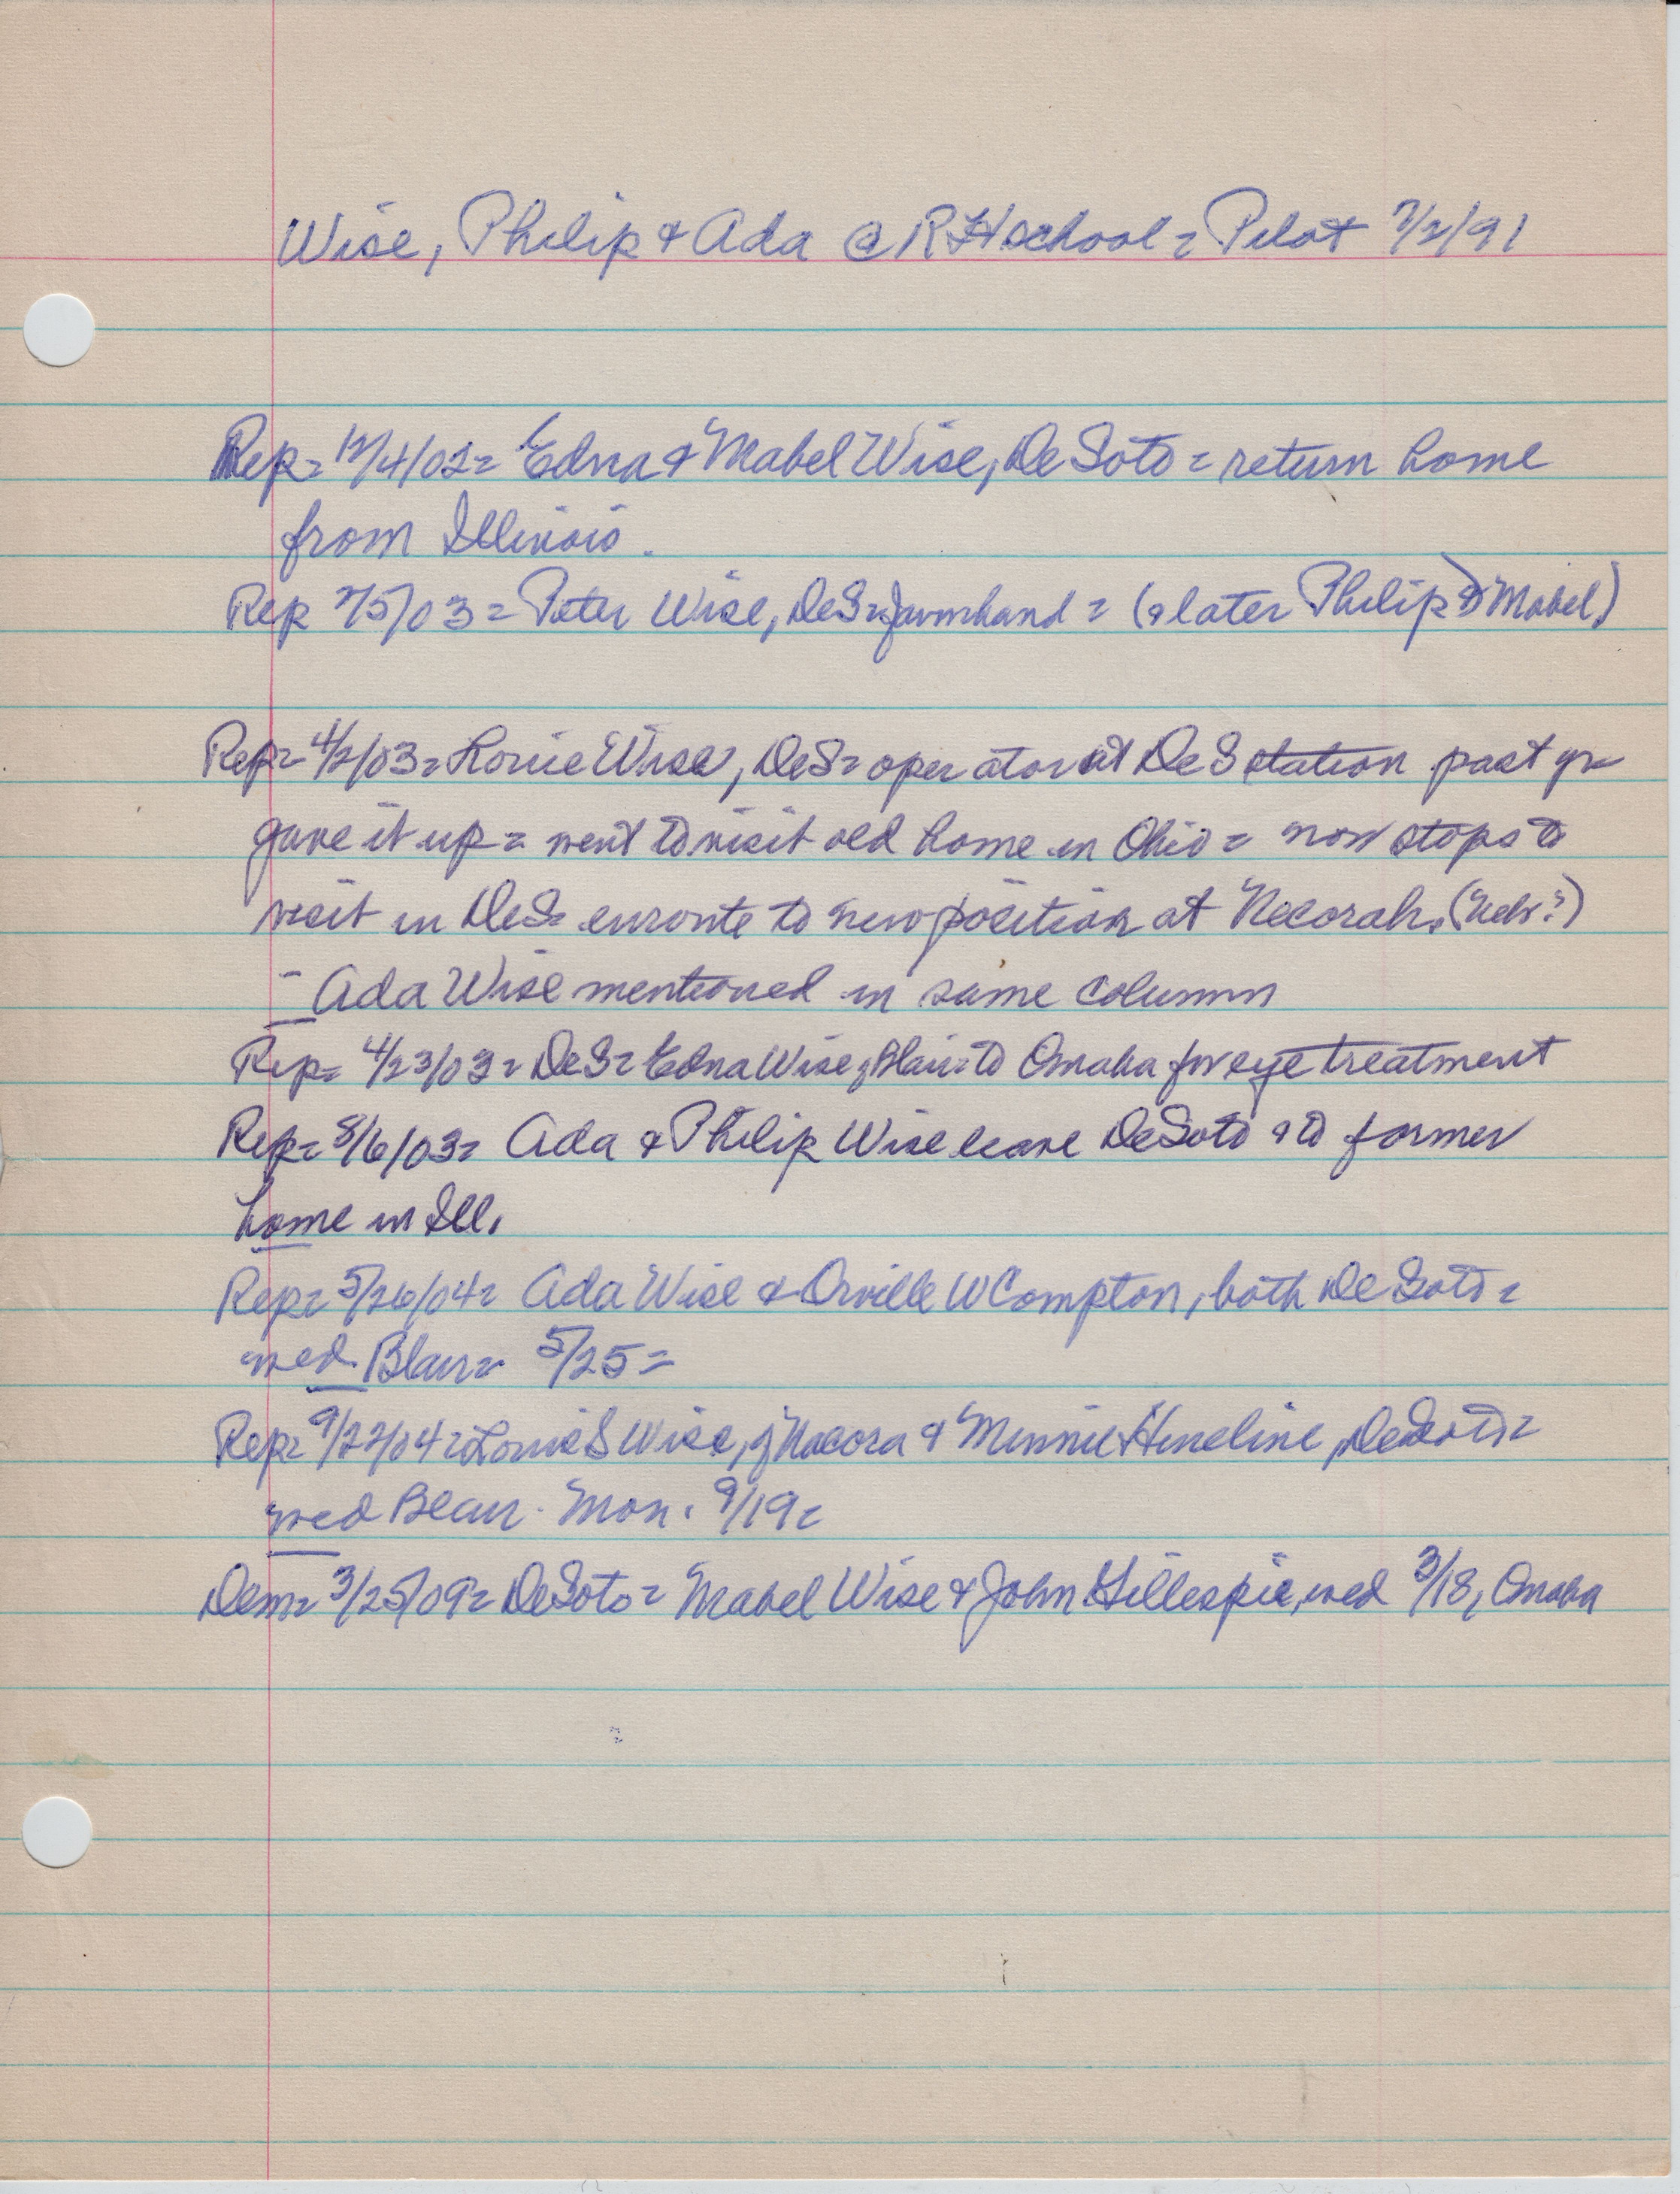 Wise, Philip & Ada @ R H school = Pilot 7/2/91
Rep = 12/4/02 = Edna & Mabel Wise, DeSoto = return home
from Illinois.
Rep 2/5/03 = Peter Wise, DeS = farmhand = (& later Philip & Mabel)
Rep = 4/2/03 = Louie Wise, DeS = operator at DeS station past yr
gave it up = went to visit old home in Ohio = now stops to
visit in DeS enroute to new position at Necorah. (Neb?)
- Ada Wise mentioned in same column
Rep = 4/23/03 = DeS = Edna Wise, Blair = to Omaha for eye treatment
Rep = 8/6/03 = Ada & Philip Wise leave DeSoto & to former
home in Ill.
Rep = 5/26/04 = Ada Wise & Orville W Compton, both DeSoto =
wed Blair = 5/25 =
Rep = 9/22/04 = Louie S Wise, of Nacora & Minnie Hineline, DeSoto =
wed Blair. Mon. 9/19 =
Dem = 3/25/09 = DeSoto = Mabel Wise & John Gillespie, wed 3/18, Omaha